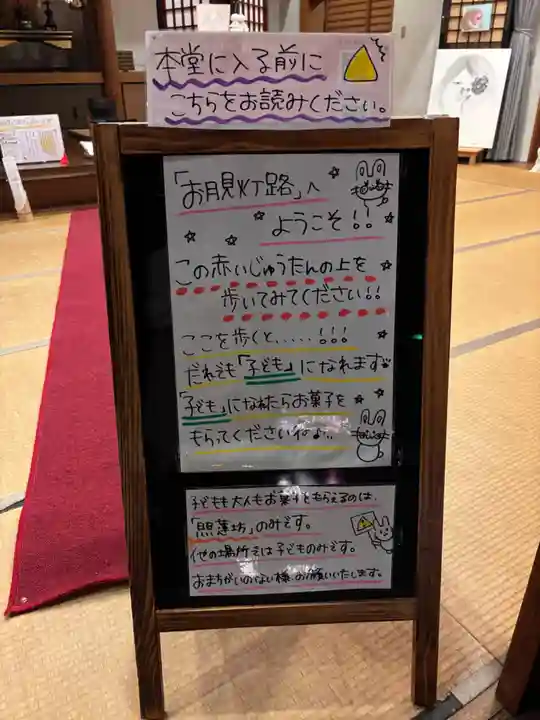 本堂に入る前に
こちらをお読みください。
「お月見灯路」へ
ようこそ!!
この赤いじゅうたんの上を
歩いてみてください!!
ここを歩くと.....!!!
だれでも「子ども」になれます
「子ども」になれたらお菓子を
もらってくださいね♪..
子どもも大人もお菓子をもらえるのは、
「照蓮坊」のみです。
他の場所では子どものみです。
おまちがいのない様、お願いいたします。